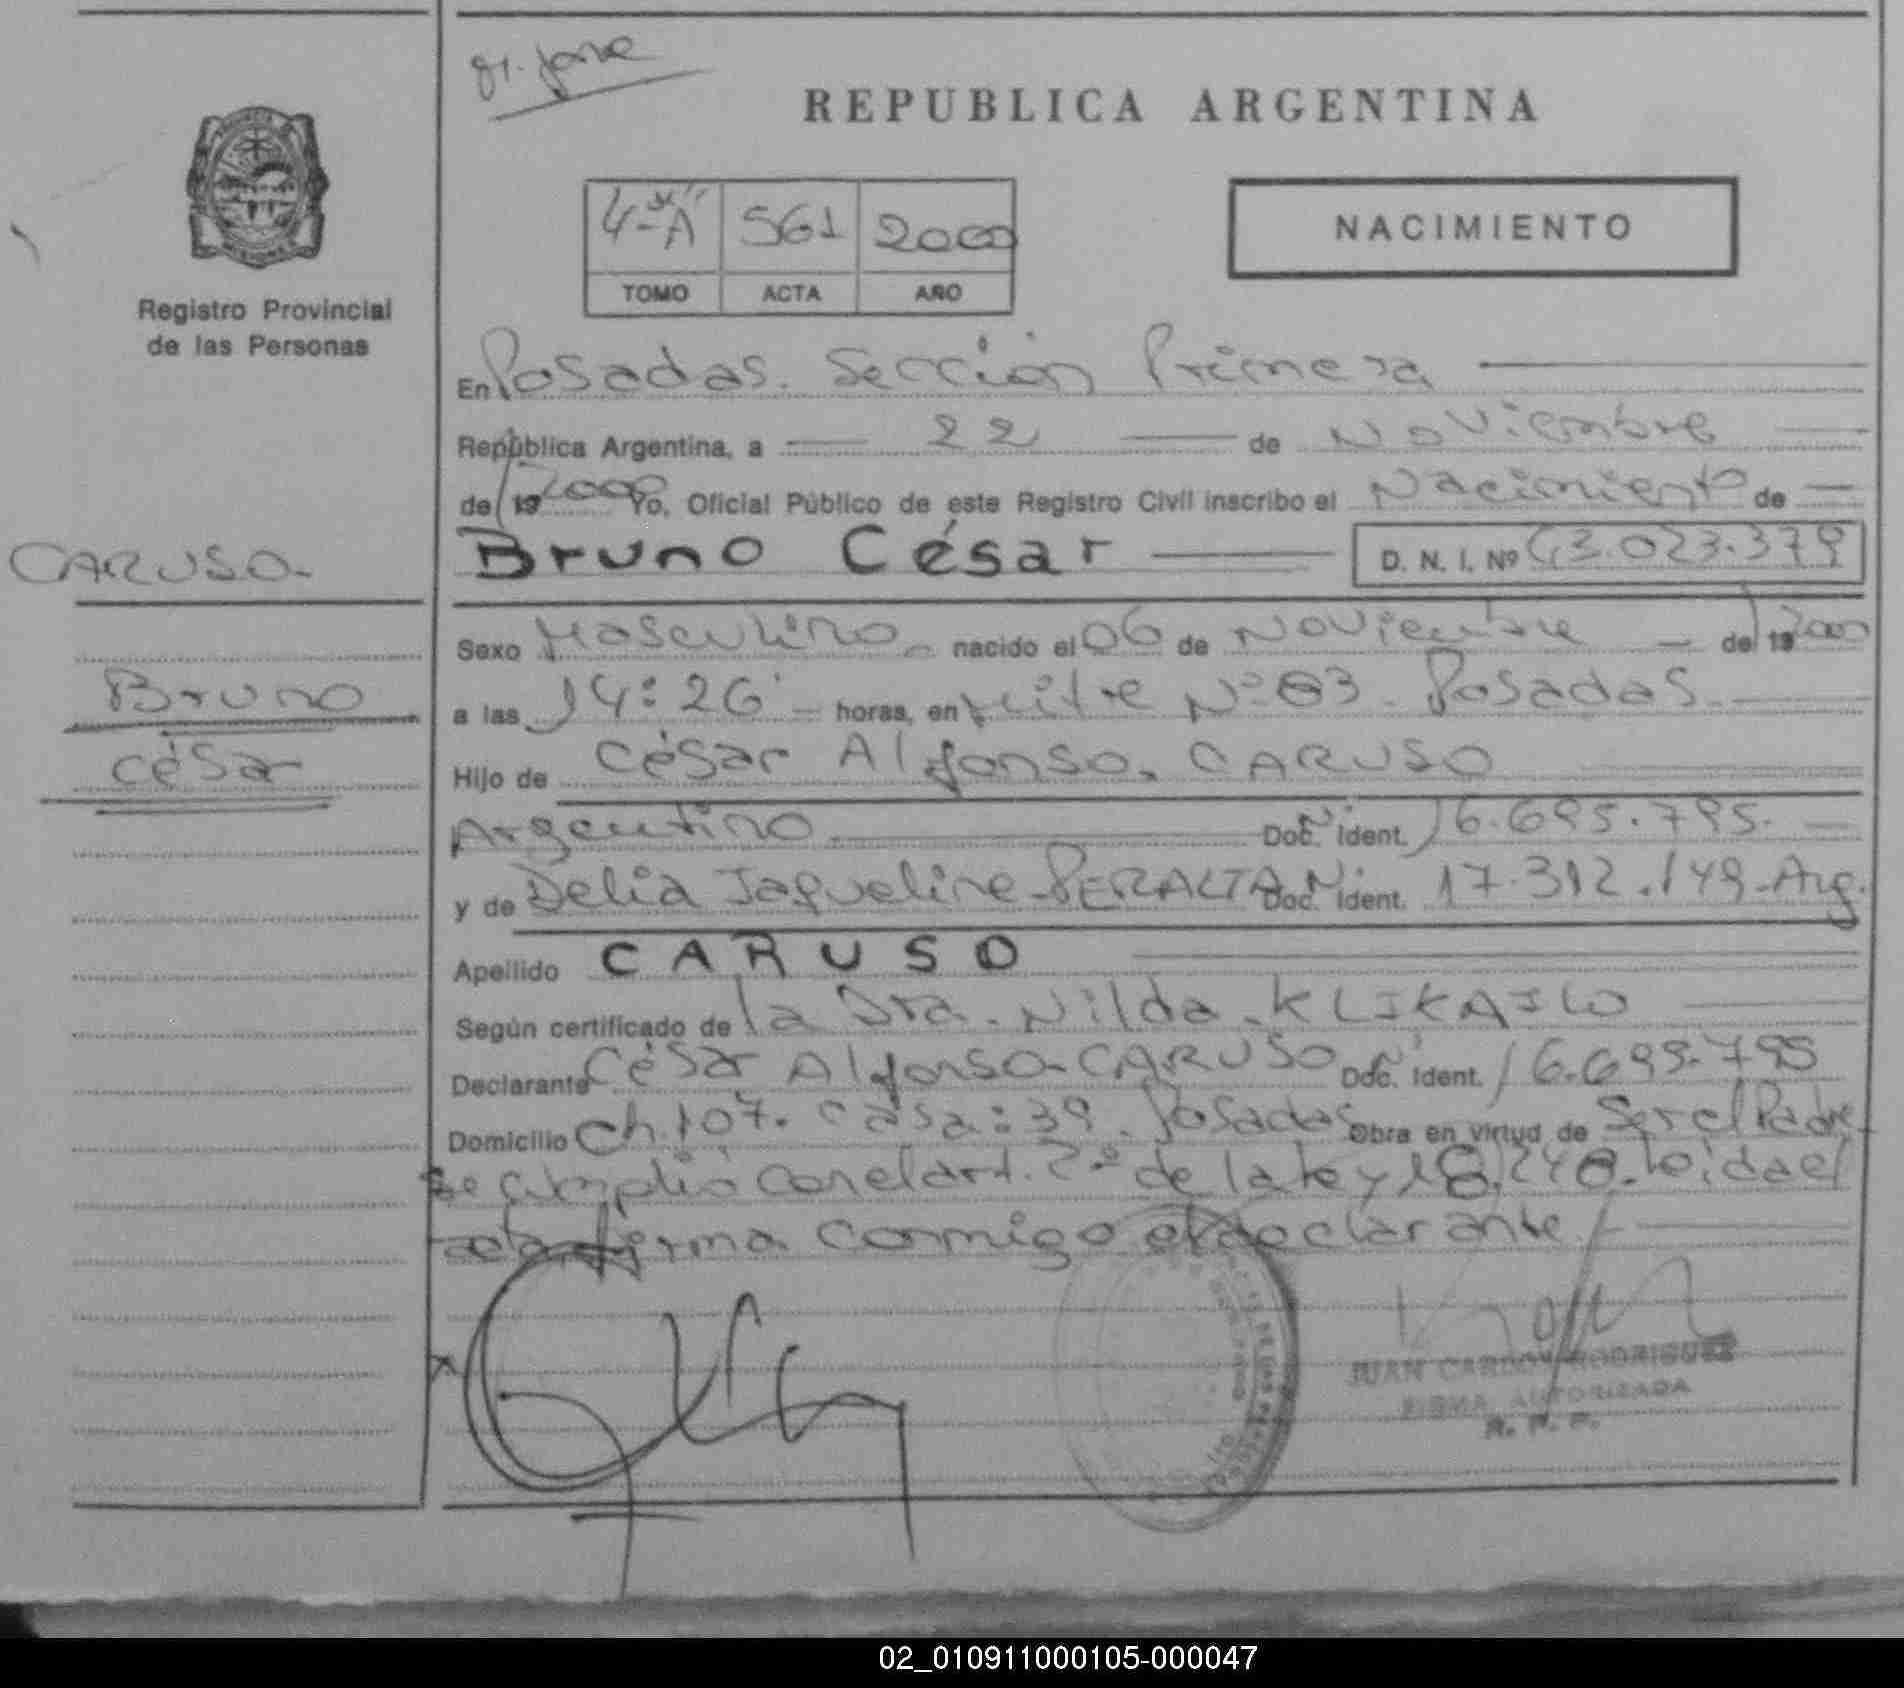 REPUBLICA ARGENTINA
4-"A" 561 2000
TOMO ACTA AÑO
NACIMIENTO
Registro Provincial
de las Personas
En Posadas. Sección Primera
República Argentina, a 22 de Noviembre
de 19 2000 Yo, Oficial Público de este Registro Civil inscribo el Nacimiento de
CARUSO
Bruno César D. N. I. Nº 43.023.379
Sexo Masculino nacido el 06 de Noviembre de 19 2000
Bruno
a las 14:26 horas, en Mitre Nº 83. Posadas
César
Hijo de César Alfonso. CARUSO
Argentino Doc. Nº Ident. 16.695.795.
y de Delia Jaqueline PERALTA Doc. Nº Ident. 17.312.149-Arg.
Apellido CARUSO
Según certificado de la Dra. Nilda KLIKAILO
Declarante César Alfonso CARUSO Doc. Nº Ident. 16.695.795
Domicilio Ch. 107. Casa: 39. Posadas Obra en virtud de Ser el Padre
Se cumplió con el art. 2º de la ley 18.248. leida el
acta firma conmigo el declarante.
JUAN CARLOS RODRIGUEZ
FIRMA AUTORIZADA
R. P. P.
02_010911000105-000047